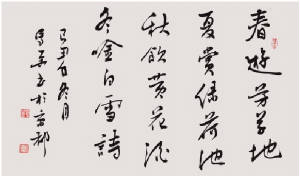 春遊芳草地
夏賞绿荷池
秋飲黄花酒
冬唫白雪詩
己丑冬月
書於京都